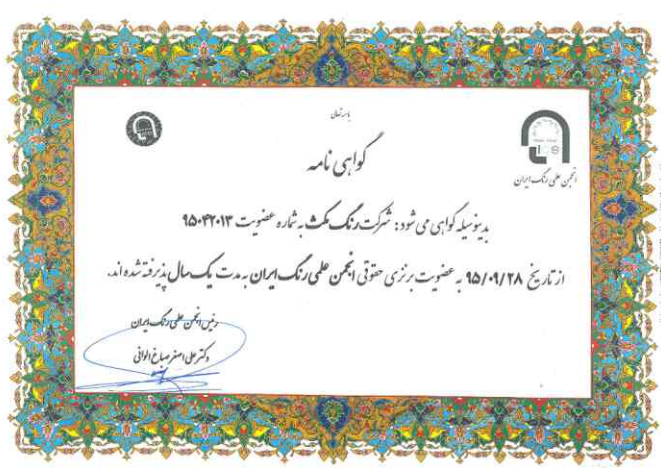 باسمه تعالی
گواهی نامه
انجمن علمی رنگ ایران
بدینوسیله گواهی می شود: شرکت رنگ مکث به شماره عضویت ۹۵۰۴۲۰۱۳
از تاریخ ۹۵/۰۹/۲۸ به عضویت برنزی حقوقی انجمن علمی رنگ ایران به مدت یک سال پذیرفته شده اند.
رئیس انجمن علمی رنگ ایران
دکتر علی اصغر صباغ الوانی